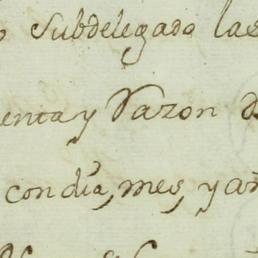 Subdelegado las
enta y Razon
con dia, mes, y añ